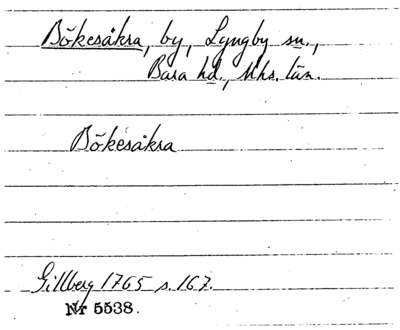 Bökesåkra, by, Lyngby sn.,
Bara hd., Mhs. län.
Bökesåkra
Gillberg 1765 s. 167.
Nr 5538.